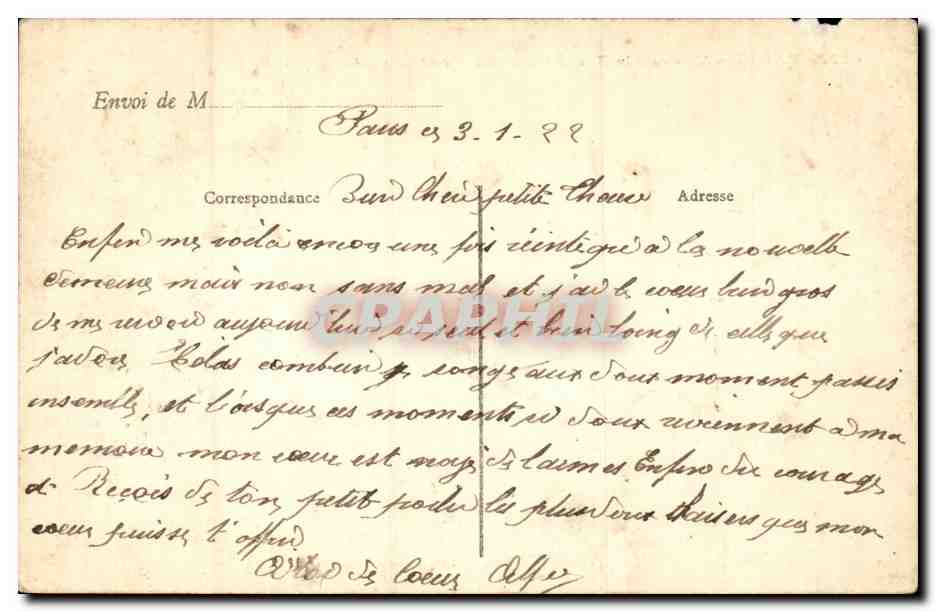 Envoi de M
Paris le 3-1-22
Correspondance Bien Cheri petite Adresse
Enfin me voila encore une fois réintégré a la nouvelle
demeure mais non sans mal et j'ai le coeur bien gros
de me revoir aujourd'hui seul et bien loing de celle que
j'adore Hélas combien je songe aux doux moment passés
ensemble, et lorsque ces moments si doux reviennent a ma
memoire mon coeur est noyé de larmes Enfin du courage
et Reçois de ton petit les plus doux baisers que mon
coeur puisse t'offrir
de Coeur
CPAPHIL